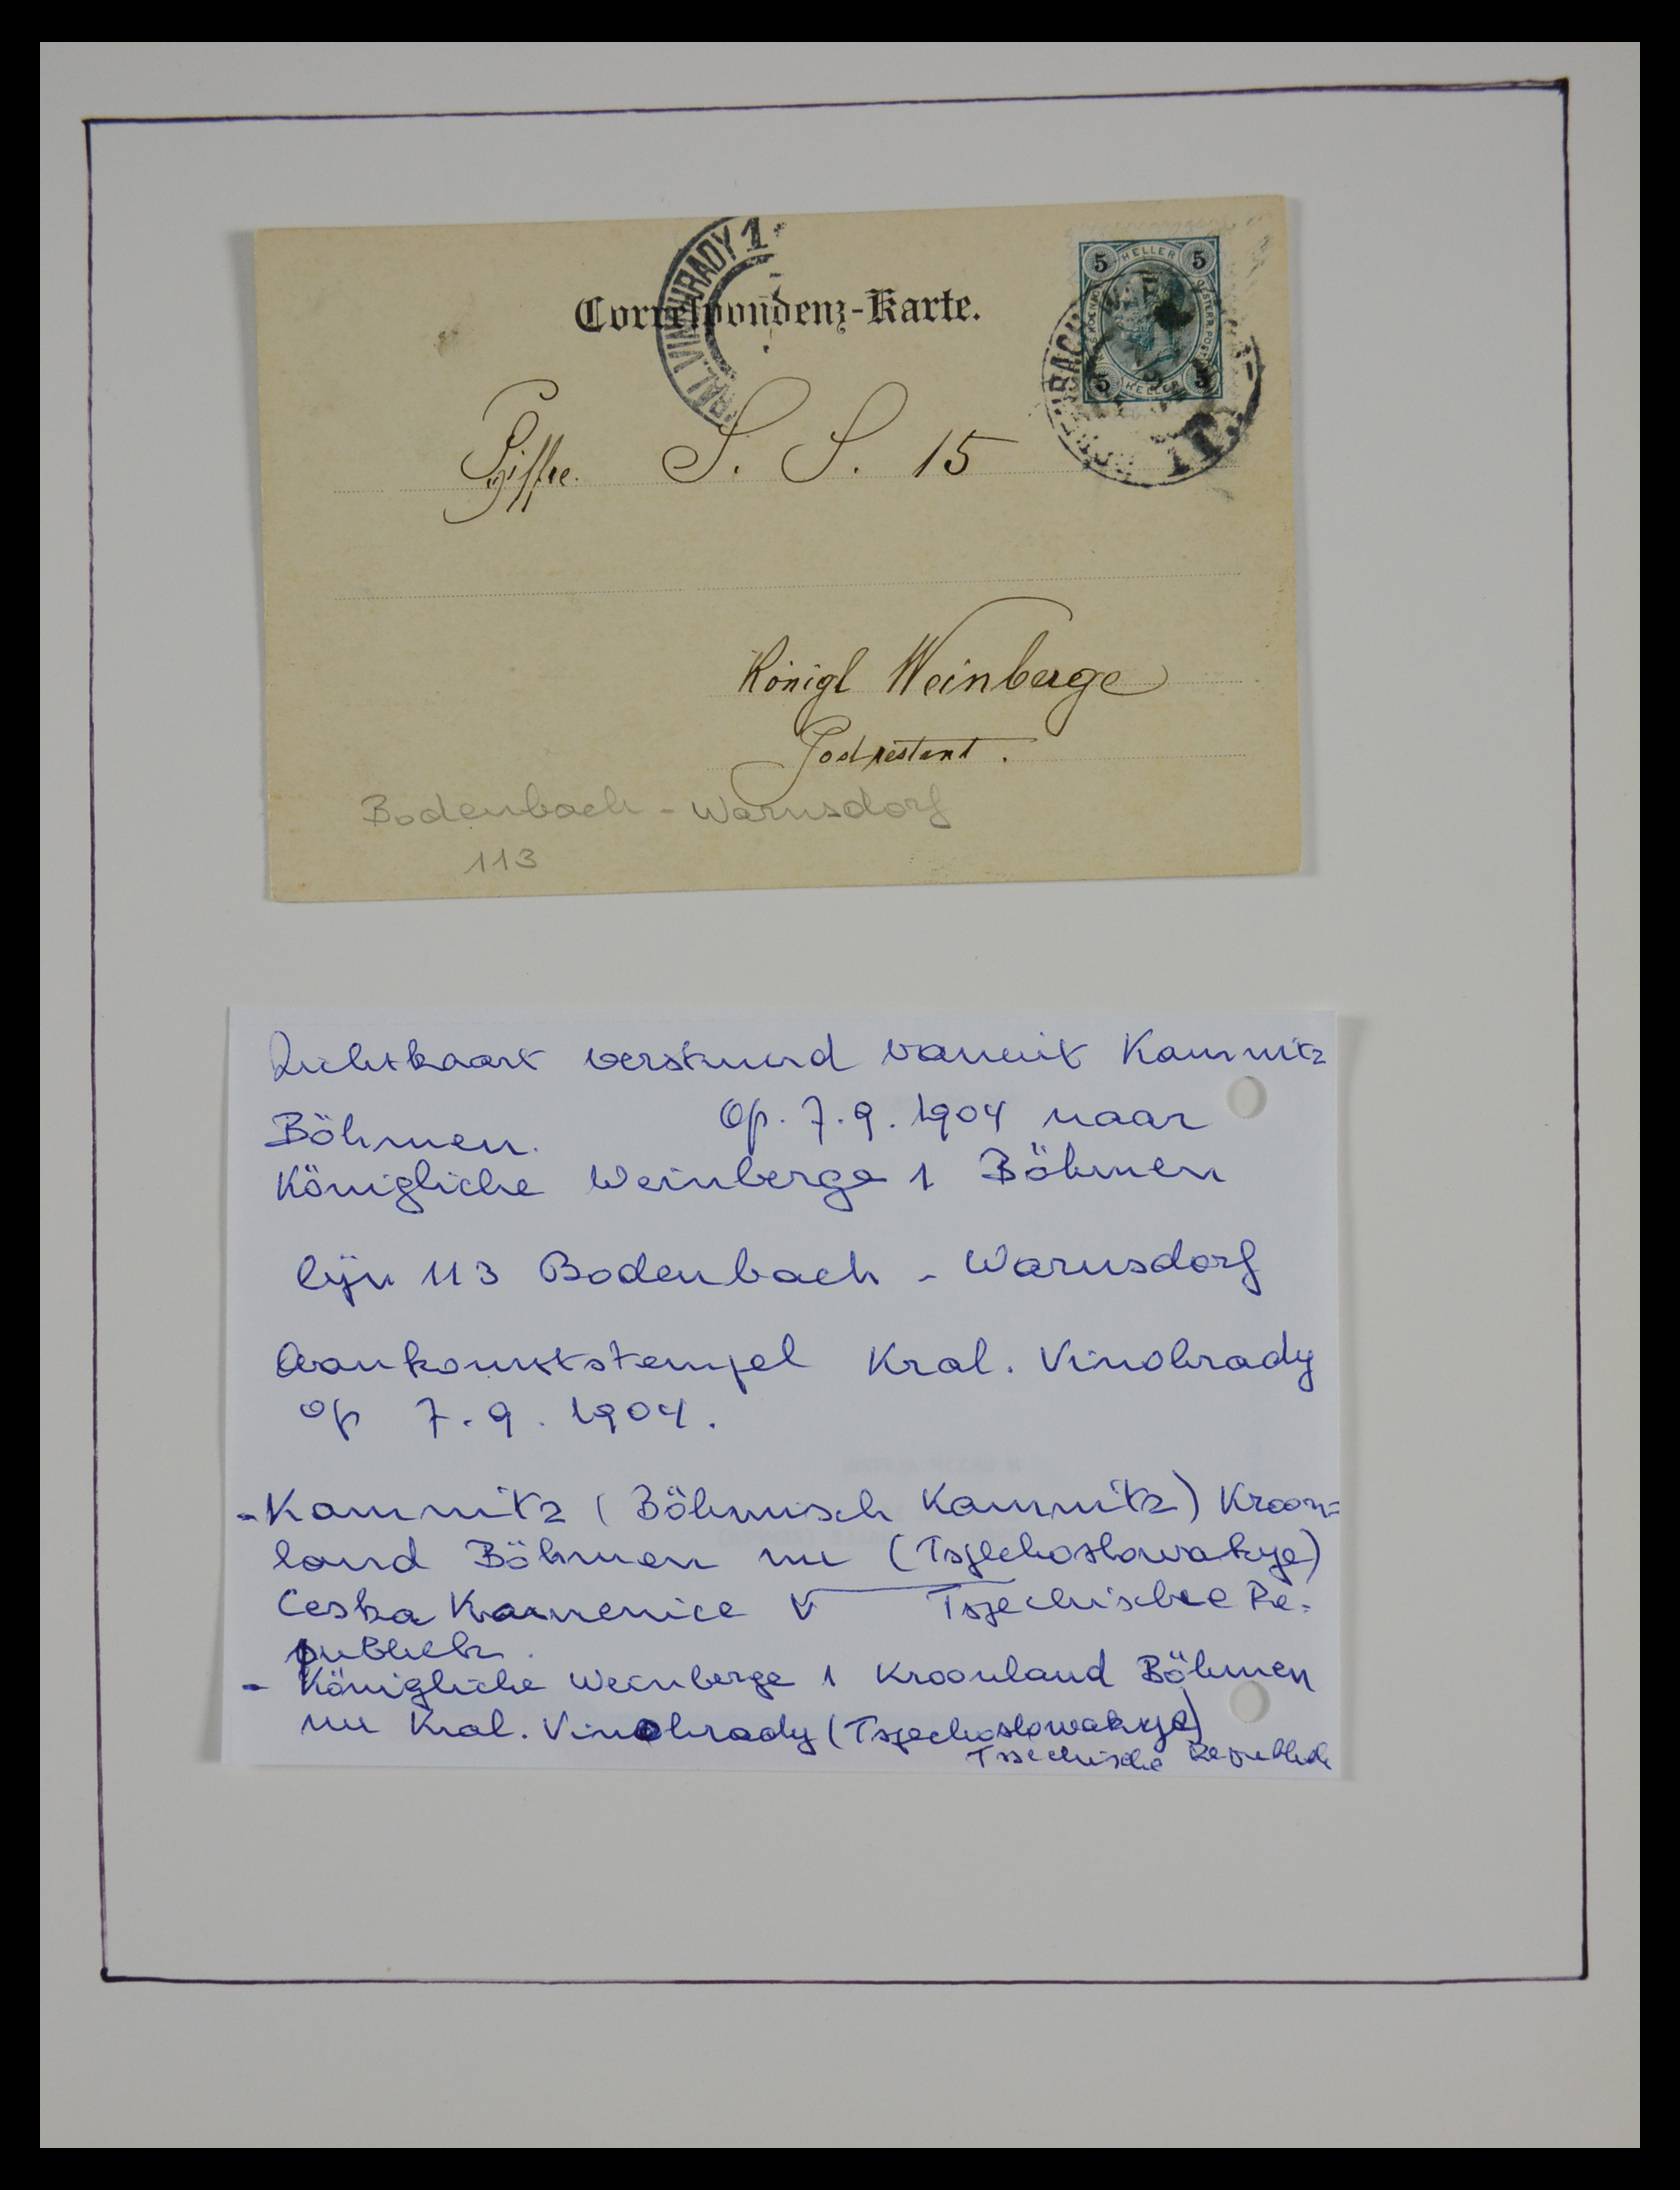 KRÁL. VINOHRADY 1
5 HELLER 5
5 HELLER 5
Correspondenz-Karte.
BODENBACH
II.
Chiffre. S. S. 15
Königl Weinberge
Postrestant.
Bodenbach - Warnsdorf
113
Lichtkaart verstuurd vanuit Kamnitz
Böhmen. Op. 7.9.1904 naar
Königliche Weinberge 1 Böhmen
lijn 113 Bodenbach - Warnsdorf
Aankomststempel Kral. Vinohrady
op 7.9.1904.
- Kamnitz (Böhmisch Kamnitz) Kroon=
land Böhmen nu (Tsjechoslowakije)
Ceska Kamenice V Tsjechische Re=
publiek.
- Königliche Weinberge 1 Kroonland Böhmen
nu Kral. Vinohrady (Tsjechoslowakije)
Tsjechische Republiek